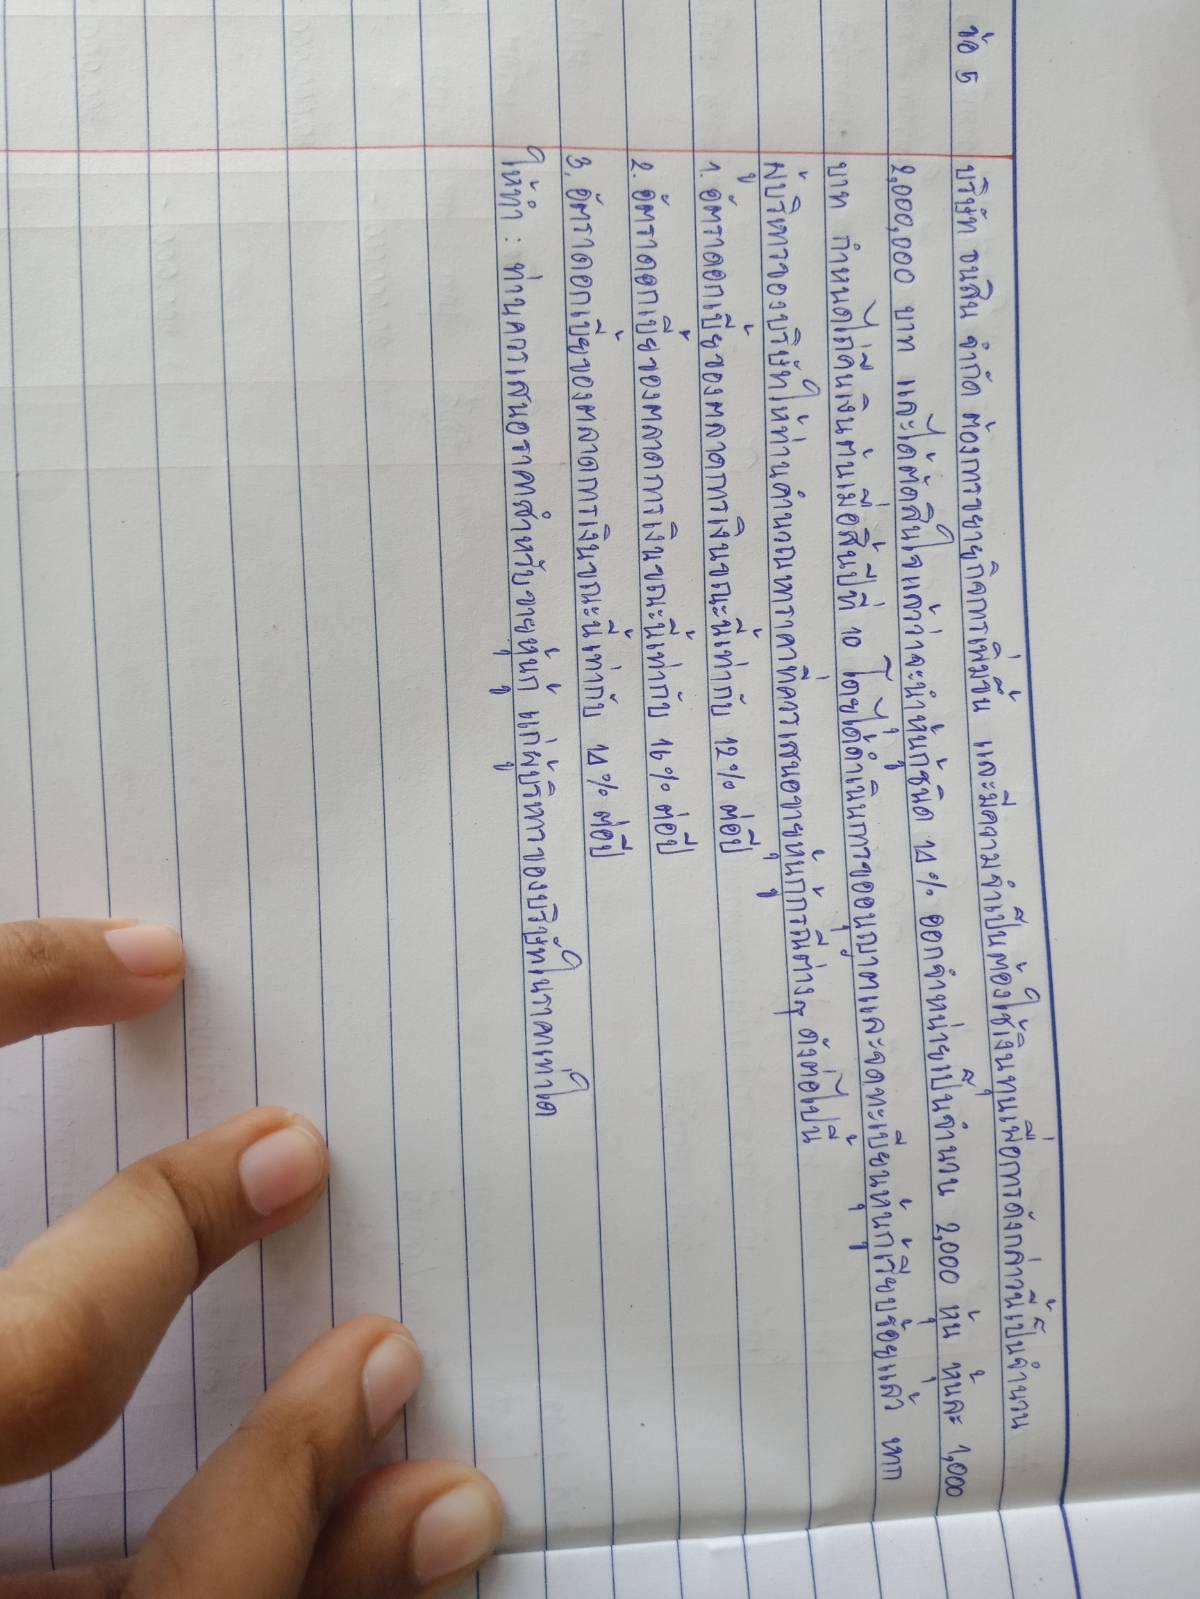 ข้อ 5 บริษัท ธนสิน จำกัด ต้องการขยายกิจการเพิ่มขึ้น และมีความจำเป็นต้องใช้เงินทุนเพื่อการดังกล่าวนี้เป็นจำนวน
2,000,000 บาท และได้ตัดสินใจแล้วว่าจะนำหุ้นกู้ชนิด 14% ออกจำหน่ายเป็นจำนวน 2,000 หุ้น หุ้นละ 1,000
บาท กำหนดไถ่คืนเงินต้นเมื่อสิ้นปีที่ 10 โดยได้ดำเนินการขออนุญาตและจดทะเบียนหุ้นกู้เรียบร้อยแล้ว หาก
ผู้บริหารของบริษัทให้ท่านคำนวณหาราคาที่ควรเสนอขายหุ้นกู้กรณีต่างๆ ดังต่อไปนี้
1. อัตราดอกเบี้ยของตลาดการเงินขณะนี้เท่ากับ 12% ต่อปี
2. อัตราดอกเบี้ยของตลาดการเงินขณะนี้เท่ากับ 16% ต่อปี
3. อัตราดอกเบี้ยของตลาดการเงินขณะนี้เท่ากับ 14% ต่อปี
ให้ทำ : ท่านควรเสนอราคาสำหรับขายหุ้นกู้ แก่ผู้บริหารของบริษัทในราคาเท่าใด